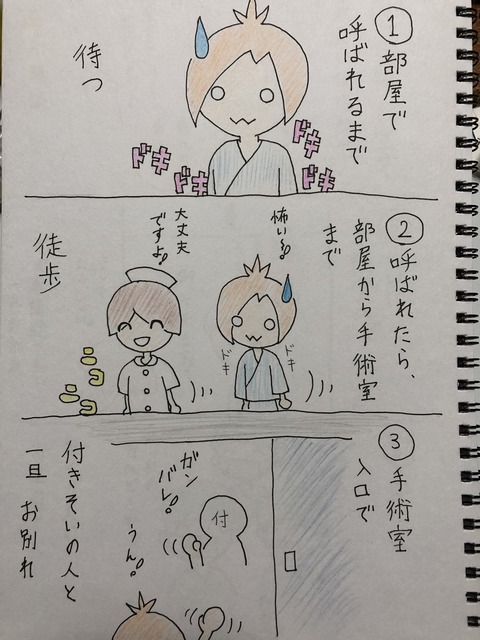 ①部屋で
呼ばれるまで
待つ
ドキ
ドキ
ドキ
ドキ
②呼ばれたら、
部屋から手術室
まで
徒歩
怖いよぉ
大丈夫
ですよ♪
ドキ
ドキ
③手術室
入口で
付きそいの人と
一旦 お別れ
ガン
バレ!
付
うん!